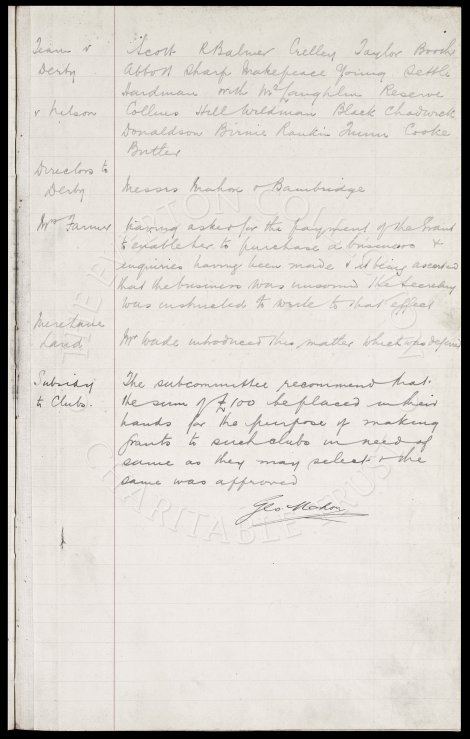 Team v Scott R Balmer Crelley Taylor Booth
Derby Abbott Sharp Makepeace Young Settle
Hardman with McLaughlin Reserve
v Nelson Collins Hill Wildman Black Chadwick
Donaldson Birnie Rankin Dunn Cooke
Butler
Directors to
Derby Messrs Mahon & Bainbridge
Mrs Farmer Having asked for the payment of the Grant
to enable her to purchase a business &
enquiries having been made & it being ascertained
that the business was unsound the Secretary
was instructed to write to that effect
Land Mr Wade introduced this matter which was deferred
Subsidy The subcommittee recommend that
to Clubs. the sum of £100 be placed in their
hands for the purpose of making
grants to such clubs in need of
same as they may select & the
same was approved
Geo Mahon
THE EVERTON COLLECTION
CHARITABLE TRUST